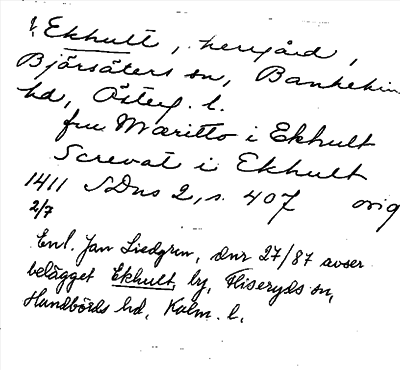 1. Ekhult, herrgård,
Björsäters sn, Bankekin
hd, Österg. l.
fru Mæritto i Ekhult
Screvat i Ekhult
1411 SDns 2, s. 407 orig
2/7
Enl. Jan Liedgren, dnr 27/87 avser
belägget Ekhult, by, Fliseryds sn,
Handbörds hd, Kalm. l.